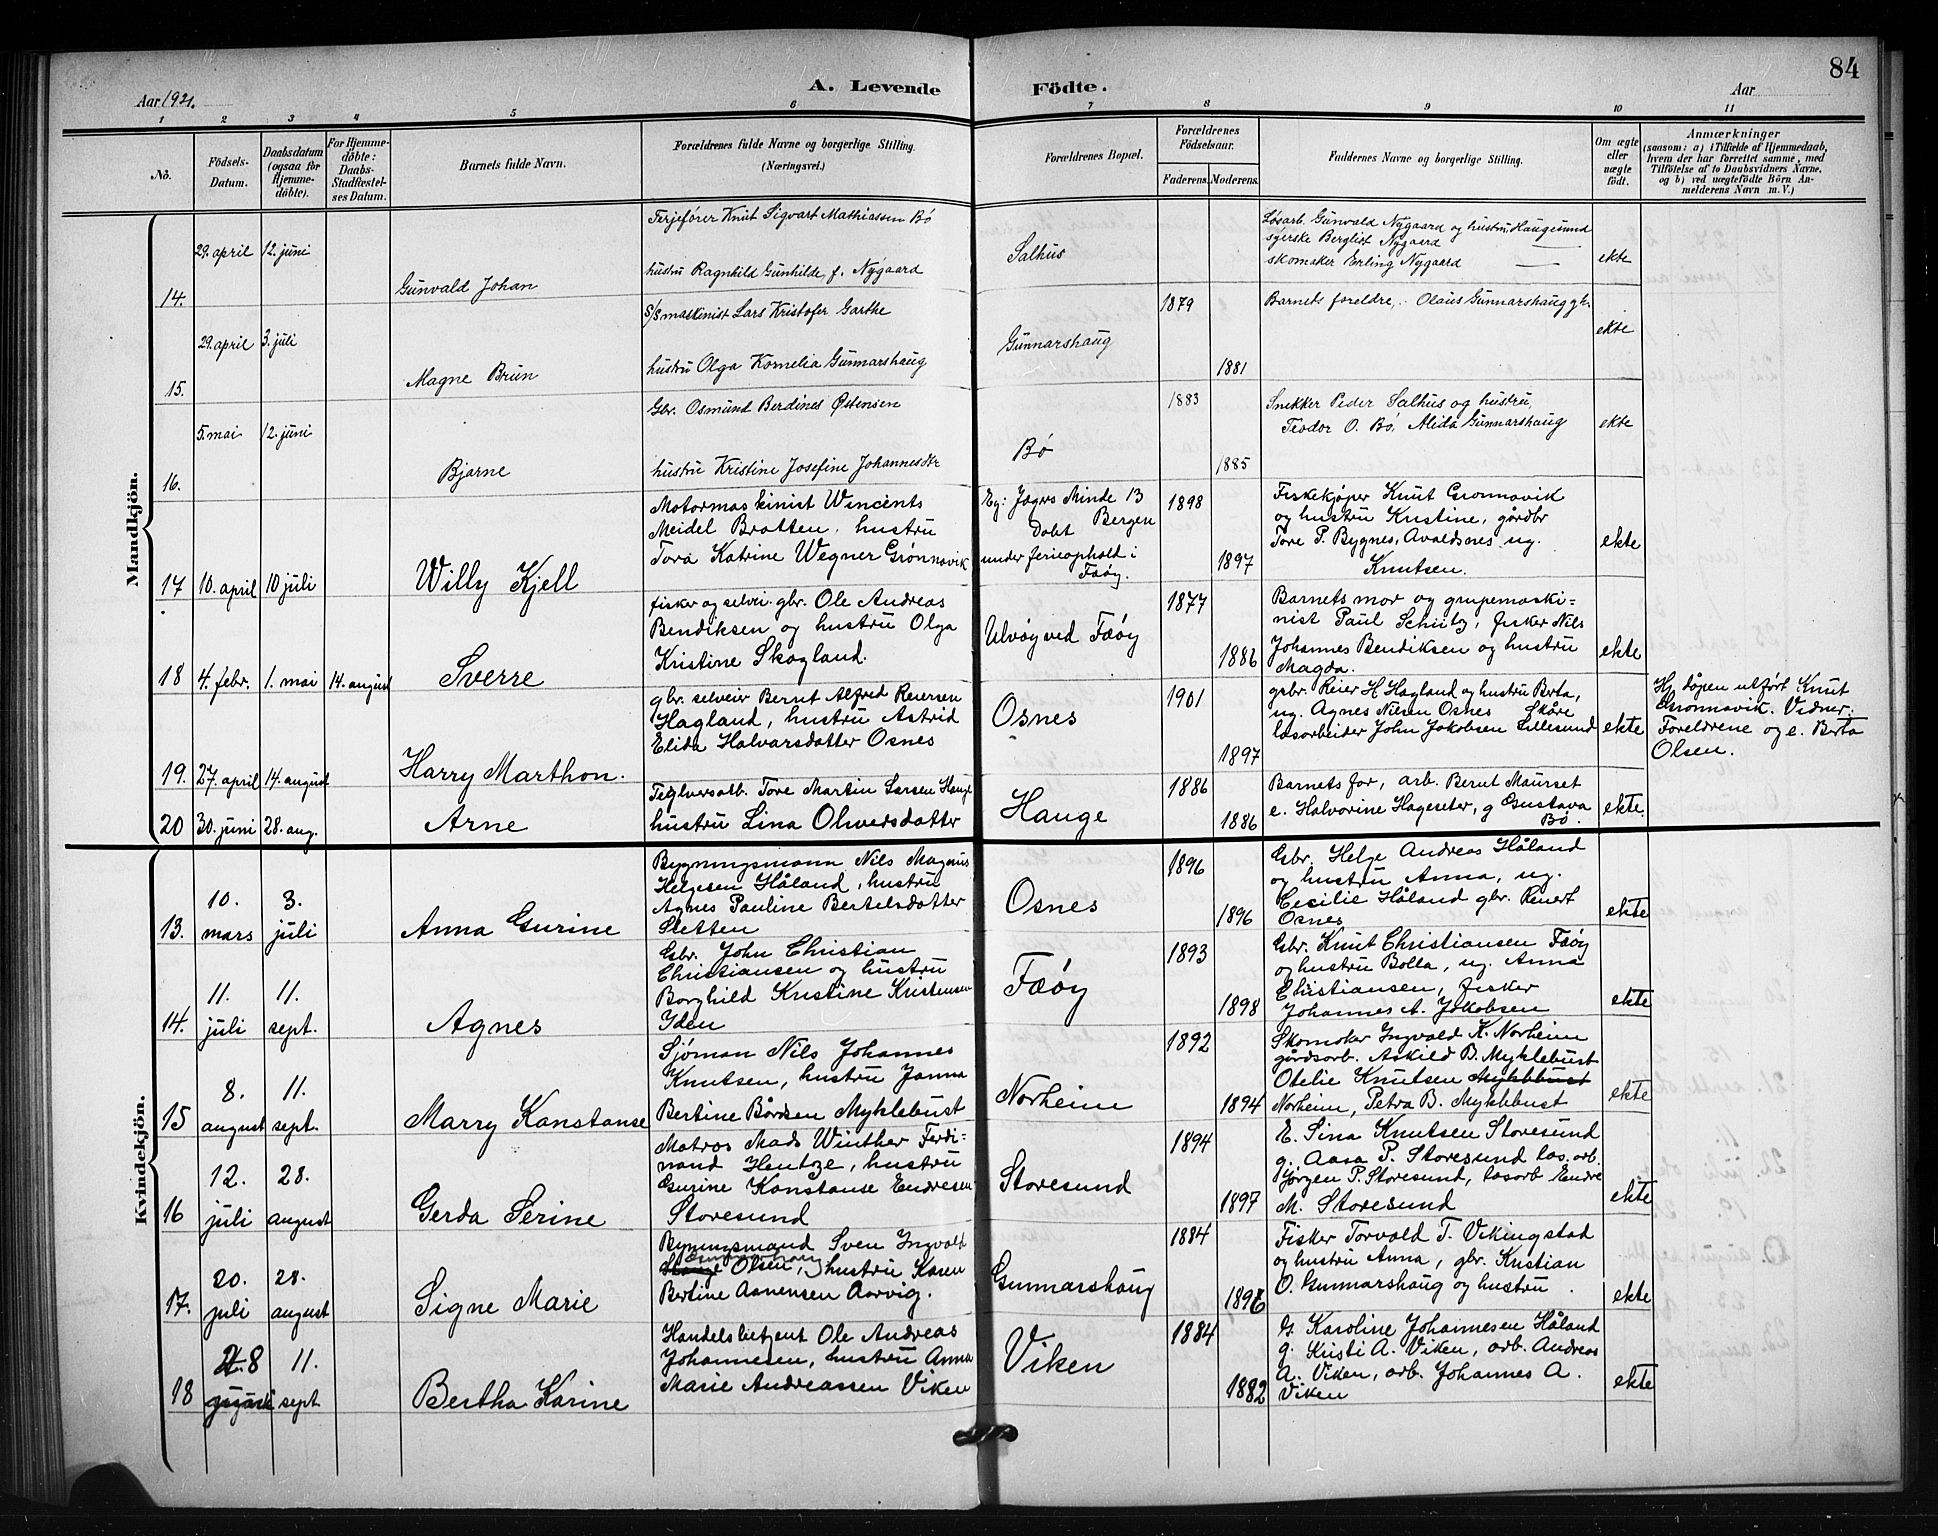 84
Aar 1921.
A. Levende
Födte.
Aar
1 2 3 4 5 6 7 8 9 10 11
No.
Födsels-Datum.
Daabsdatum (ogsaa for Hjemme-döbte).
For Hjemme-döbte: Daabs-Stadfæstel-ses Datum.
Barnets fulde Navn.
Forældrenes fulde Navne og borgerlige Stilling.
(Næringsvei.)
Forældrenes Bopæl.
Forældrenes Födselsaar.
Faderens. Moderens.
Faddernes Navne og borgerlige Stilling.
Om ægte eller uægte födt.
Anmærkninger
(saasom: a) i Tilfælde af Hjemmedaab,
hvem der har forrettet samme, med
Tilföielse af to Daabsvidners Navne,
og b) ved uægtefödte Börn An-
melderens Navn m. V.)
Mandkjön.
14.
29. april
12. juni
Gunvald Johan
Ferjefører Knut Sigvart Mathiassen Bö
hustru Ragnhild Gunhilde, f. Nygaard
Salhus
Løsarb. Gunvald Nygaard og hustru Haugesund
syerske Bergliot Nygaard —
skomaker Erling Nygaard —
ekte
15.
29. april
3. juli
Magne Brun
S/S maskinist Lars Kristofer Garthe
hustru Olga Kornelia Gunnarshaug
Gunnarshaug
1879
1881
Barnets foreldre, Olaus Gunnarshaug
ekte
16.
5. mai
12. juni
Bjarne
Gbr. Osmund Berdines Østensen
hustru Kristine Josefine Johannesdtr
Bö
1883
1885
Snekker Peder Salhus og hustru,
Teodor O. Bö, Alida Gunnarshaug
ekte
17.
10. april
10 juli
Willy Kjell
Motormaskinist Wincents
Meidel Bratten, hustru
Tora Katrine Wegner Grönnavik
Eg: Jægers Minde 13
Døbt Bergen
under ferieophold i
Fæöy.
1898
1897
Fiskekjøper Knut Gronnavik
og hustru Kristine, gårdbr
Tore P. Bygnes, Avaldsnes ug.
Knutsen.
ekte
18
4. febr.
1. mai
14. august
Sverre
fisker og selvei. gbr. Ole Andreas
Bendiksen og hustru Olga
Kristine Skogland.
Ulvöy ved Fæöy
1877
1886
Barnets mor og grupemaski=
nist Paul Schütz, fisker Nils
Johannes Bendiksen og hustru
Magda.
ekte
19.
27. april
14. august
Harry Marthon.
gbr. selveir Bernt Alfred Reiersen
Hagland, hustru Astrid
Elida Halvarsdatter Osnes
Osnes
1901
1897
grbr. Reier H Hagland og hustru Berta,
ug. Agnes Nilsen Osnes Skåre
løsarbeider John Jakobsen Lillesund
ekte
Hj. dåpen utført Knut
Gronnavik. Vidner:
Foreldrene og e. Berta
Olsen.
20
30. juni
28. aug.
Arne
Teglversarb. Tore Martin Larsen Hauge
hustru Lina Oliversdatter
Hauge
1886
1886
Barnets far, arb. Bernt Maurset
e. Halvorine Hageseter, g Gustava
Bö.
ekte.
Kvindekjön.
13.
10. mars
3. juli
Anna Gurine
Bygningsmann Nils Magnus
Helgesen Håland, hustru
Agnes Pauline Bertelsdatter
Sletten
Osnes
1896
1896
Gbr. Helge Andreas Håland
og hustru Anna, ug.
Cecilie Håland gbr. Reiert
Osnes
ekte
14.
11. juli
11. sept.
Agnes
Gbr. John Christian
Christiansen og hustru
Borghild Kristine Kristensen
Iden
Fæöy
1893
1898
Gbr. Knut Christiansen Fæöy
og hustru Bolla, ug. Anna
Christiansen, fisker
Johannes A. Jakobsen
ekte
15
8. august
11. sept.
Marry Konstanse
Sjöman Nils Johannes
Knutsen, hustru Janna
Bertine Bårdsen Myklebust
Norheim
1892
1894
Skomaker Ingvald K. Norheim
gårdsarb. Askild B. Myklebust
Otelie Knutsen Myklebust
Norheim, Petra B. Myklebust
ekte
16
12. juli
28. august
Gerda Serine
Matros Mads Winther Ferdi=
nand Hentze, hustru
Gurine Konstanse Endresen
Storesund
Storesund
1894
1897
E. Sina Knutsen Storesund
g. Aasa P. Storesund løs.arb.
Jörgen P. Storesund, løsarb Endre
M. Storesund
ekte
17.
20. juli
28. august
Signe Marie
Bygningsmand Sven Ingvald
Olsen, hustru Karen
Bertine Asnensen Aarvig.
Gunnarshaug
1884
1896
Fisker Torvald T. Vikingstad
og hustru Anna, gbr. Kristian
O. Gunnarshaug og hustru.
ekte
18
11. sept.
Bertha Karine
Handelsbetjent Ole Andreas
Johannesen, hustru Anna
Marie Andreassen Viken
Viken
1884
1882
G. Karoline Johannesen Håland
g. Kristi A. Viken, arb. Andreas
A. Viken, arb. Johannes A.
Viken
ekte